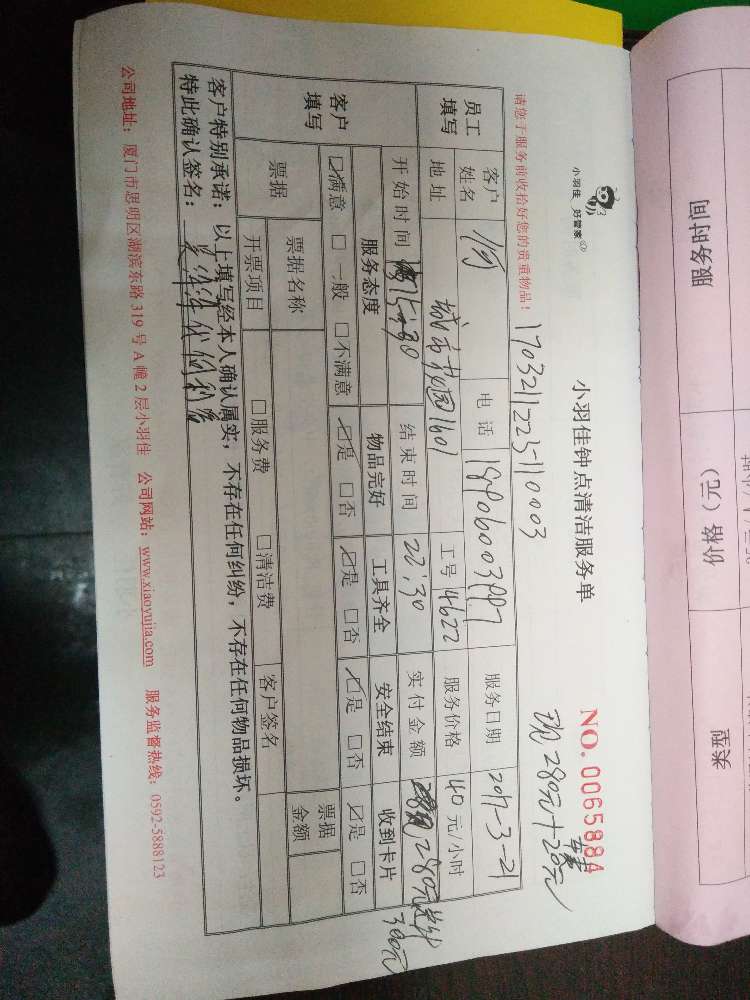 小羽佳 好管家
小羽佳钟点清洁服务单
NO. 006588A
请您于服务前收拾好您的贵重物品！
170321122511 0003
现280元+20元
员工填写
客户姓名
电话
服务日期 2017-3-21
地址 城市花园1601
工号 14622
服务价格 40元/小时
开始时间 15:30
结束时间 22:30
实付金额 280元
300元
客户填写
服务态度 物品完好 工具齐全 安全结束 收到卡片
☑满意 □一般 □不满意 ☑是 □否 ☑是 □否 ☑是 □否 ☑是 □否
票据
票据名称
票据金额
开票项目 □服务费 □清洁费 客户签名
客户特别承诺：以上填写经本人确认属实，不存在任何纠纷，不存在任何物品损坏。
特此确认签名：
公司地址：厦门市思明区湖滨东路 319 号 A 幢 2 层小羽佳 公司网站：www.xiaoyujia.com 服务监督热线：0592-5888123
服务时间
价格（元）
类型